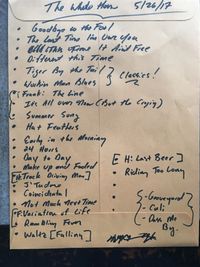 The Whole Horn 5/26/17
• Goodbye to the Fool
• The Last Time I'm Over You
• Time It And Free
• Different this Time
• Tiger By the Tail } Classics!
• Workin Man Blues
• Funk: The Line
• It's All over Now (But the Crying)
• Summer Song
• Hat Feathers
• Early in the Morning
• 24 Hours
• Day to Day
• Make up and Faded
• [H: Track Diving Man]
• J'Tudors
• Coincidental
• Not Much Next Time
• [F: Variation of Life
• Rambling From
• Waltz [Falling]
[H: Last Beer]
• Riding Too Long
- Graveyard
- Cali
- Pass Me By.